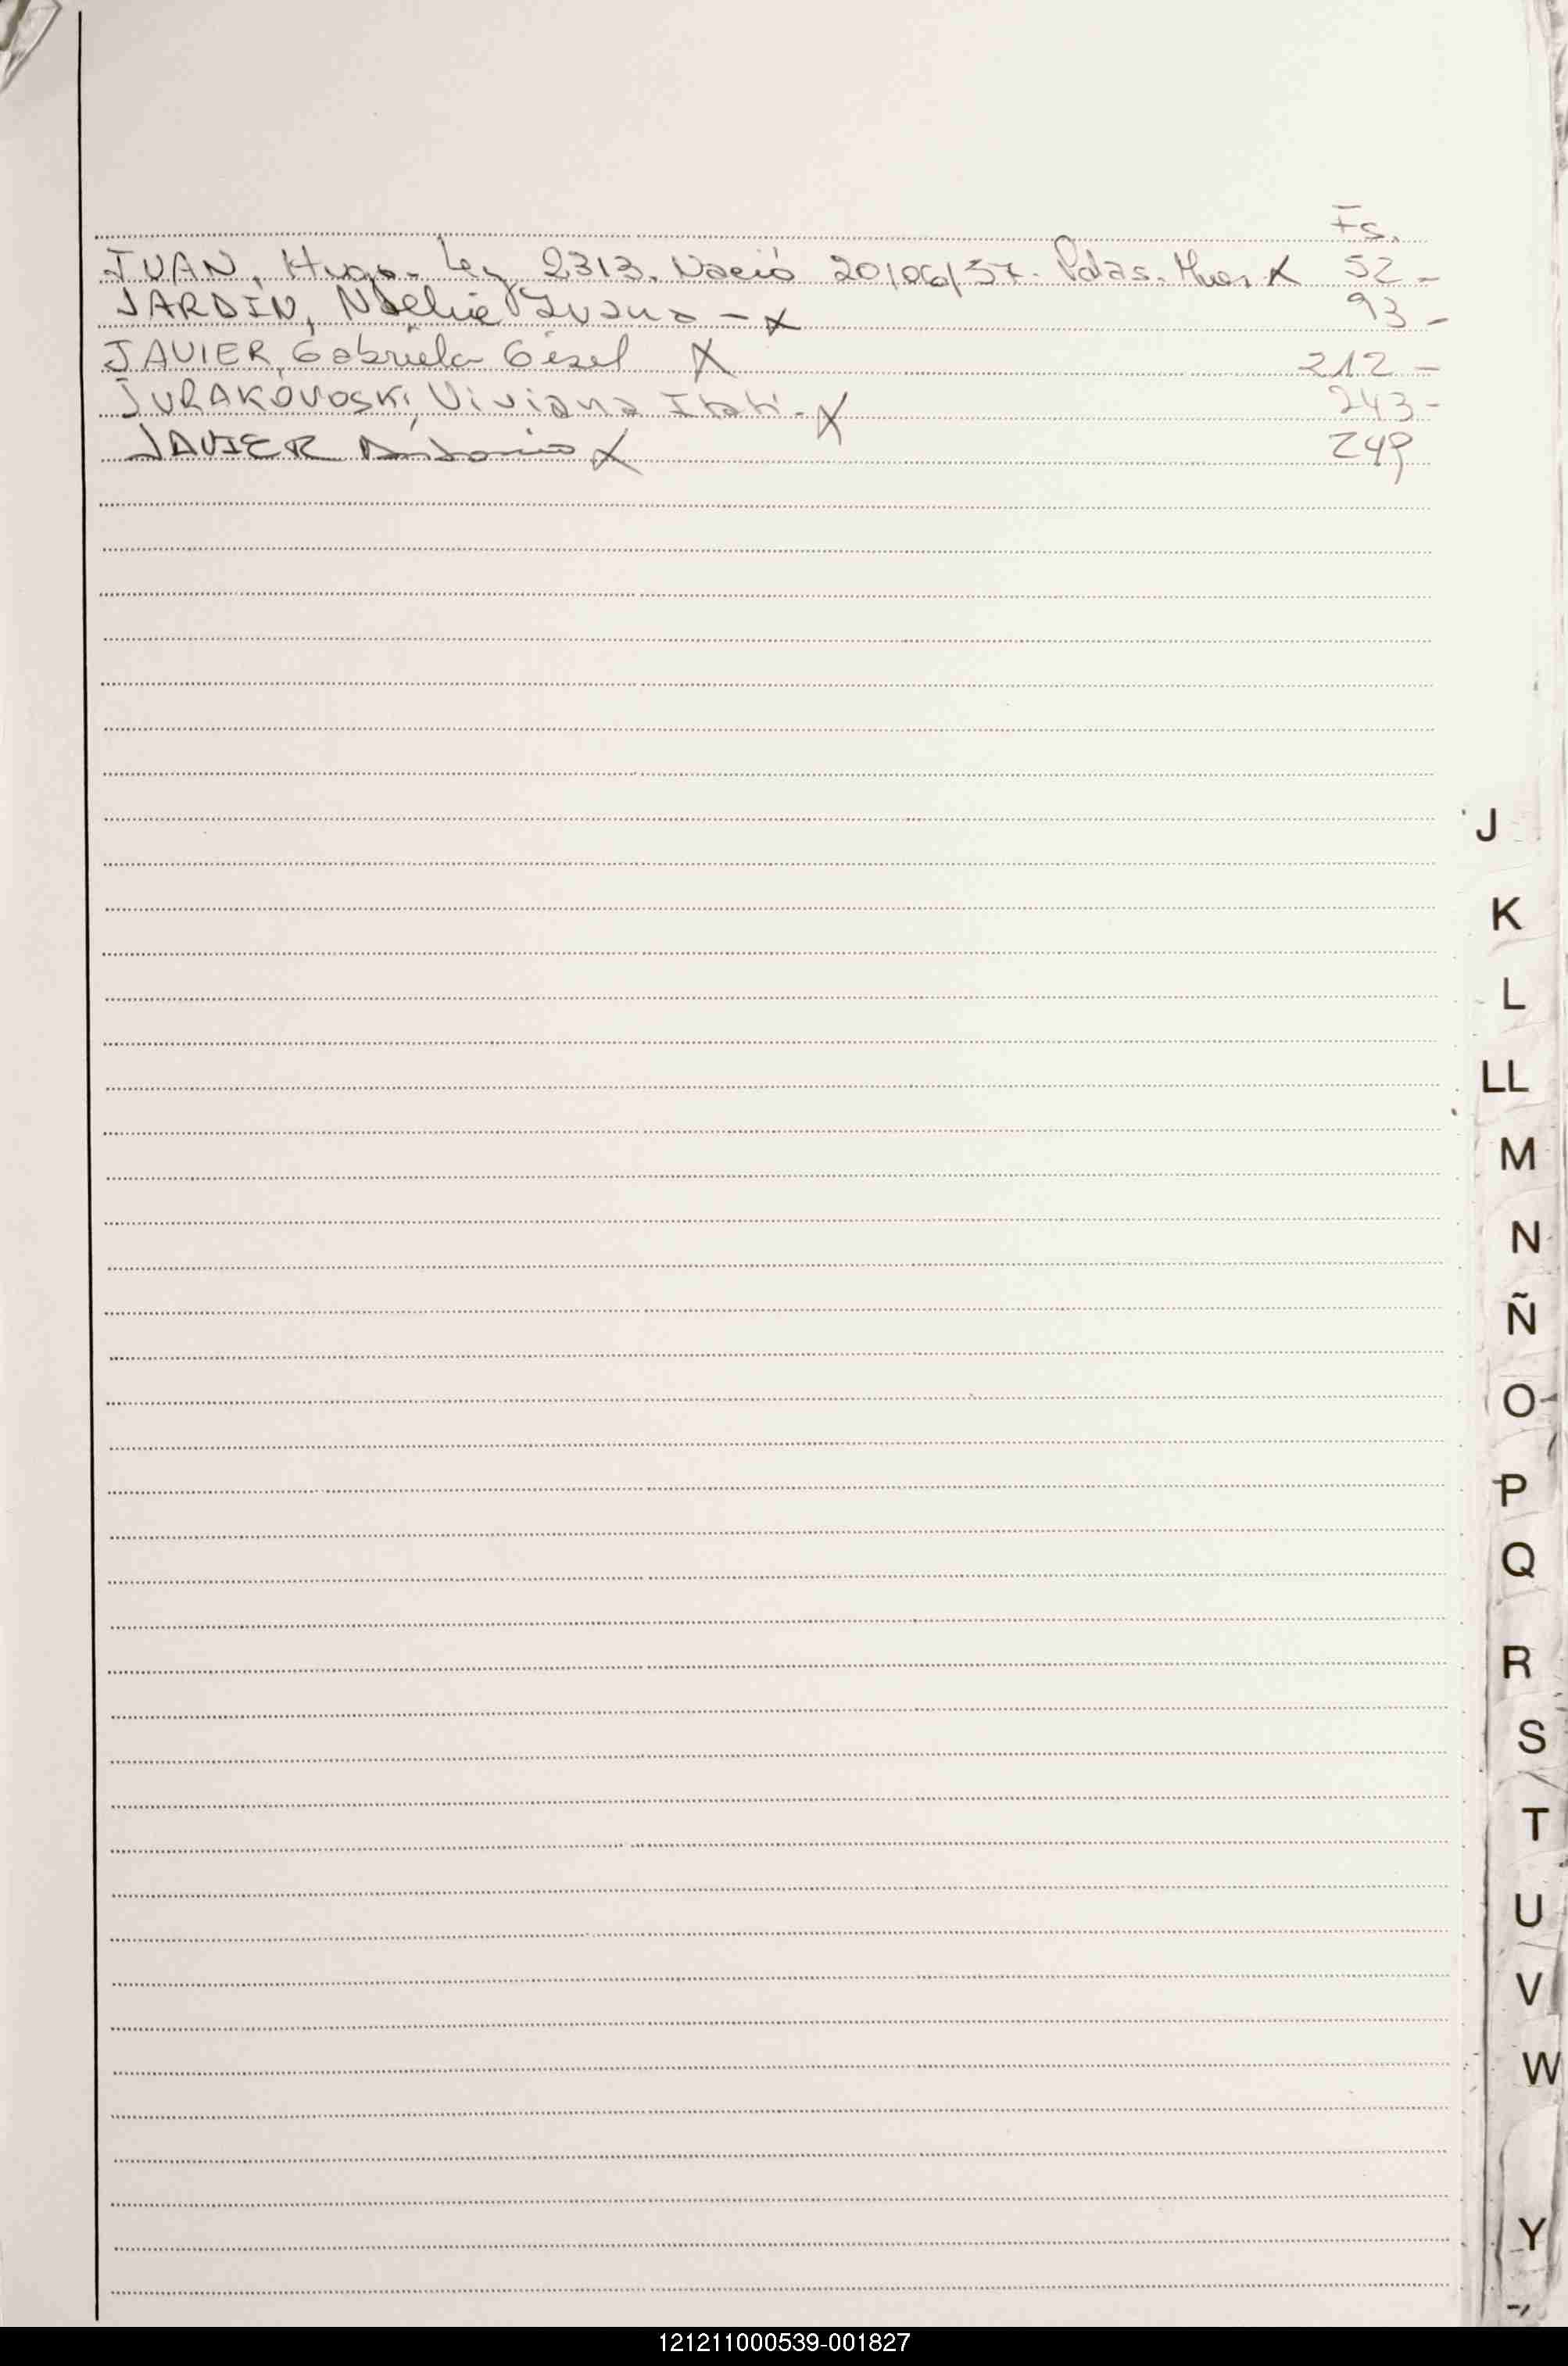 Fs.
JUAN, Hugo. Ley 2313. Nació 20/06/57. Pdas. Mnes. X 52 -
JARDIN, Noelia Ivana - X 93 -
JAVIER, Gabriela Gisel X 212 -
JURAKOVOSKi, Viviana Itati. X 243 -
JAVIER Antonio X 249
J
K
L
LL
M
N
Ñ
O
P
Q
R
S
T
U
V
W
Y
121211000539-001827